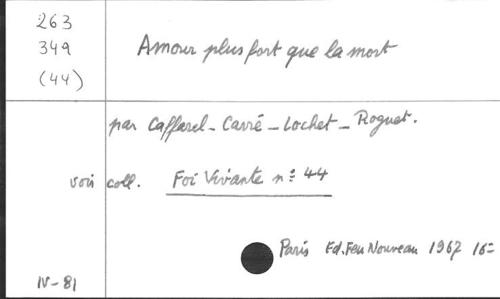 263
349
(44)
Amour plus fort que la mort
par Caffarel - Carré - Lochet - Roguet.
voir coll. Foi Vivante n: 44
Paris Ed. Feu Nouveau 1967 16=
IV - 81